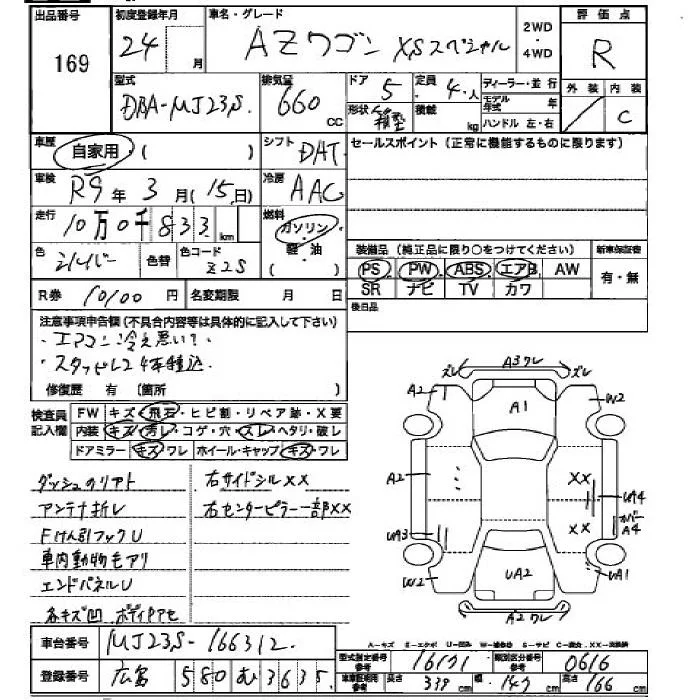 出品番号 初度登録年月 車名・グレード 2WD 評価点
169 24 月 AZワゴン XSスペシャル 4WD R
型式 排気量 ドア 定員 ディーラー・並行 外装 内装
DBA-MJ23S. 660 CC 5 4人 モデル年式 年
形状 箱型 積載 kg ハンドル 左・右 C
車歴 自家用 ( ) シフト DAT セールスポイント(正常に機能するものに限ります)
車検 R9年 3月(15日) 冷房 AAC
走行 10万0千833 km 燃料 ガソリン・軽油 ( )
色 シルバー 色替 色コード Z2S 装備品(純正品に限り○をつけてください) 新車保証書
PS PW ABS エアB AW 有・無
R券 10100 円 名変期限 月 日 SR ナビ TV カワ
後日品
注意事項申告欄(不具合内容等は具体的に記入して下さい)
・エアコン冷え悪い。
・スタッドレス4本積込。
修復歴 有 (箇所 )
検査員記入欄 FW キズ・飛石・ヒビ割・リペア跡・X要
内装 キズ・汚レ・コゲ・穴・スレ・ヘタリ・破レ
ドアミラー キズ・ワレ ホイール・キャップ キズ・ワレ
ダッシュのリアト 右サイドシルXX
アンテナ折レ 右センターピラー一部XX
Fけん引フックU
車内動物モアリ
エンドパネルU
各キズ凹 ボディPアセ
ズレ A3ワレ ズレ
A2 A1 W2
A2 XX UA4
UA3 XX カバーA4
W2 UA2 UA1
A2ワレ
車台番号 MJ23S-166312.
A-キズ E-エクボ U-凹み W-補修跡 S-サビ C-腐食 XX-交換済
登録番号 広島 580 む 3635
型式指定番号参考 16171 類別区分番号参考 0616
車庫証明用参考 長さ 339 cm 幅 147 cm 高さ 166 cm